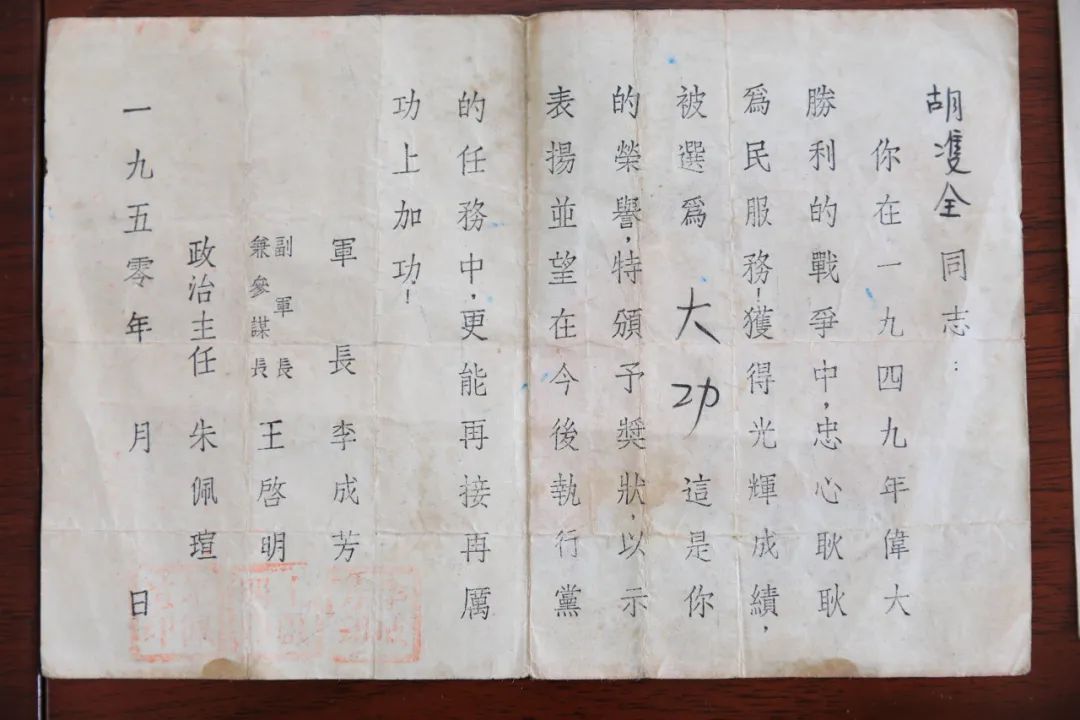 胡雙全同志：
你在一九四九年偉大
勝利的戰爭中，忠心耿耿
爲民服務！獲得光輝成績，
被選爲大功這是你
的榮譽，特頒予獎狀，以示
表揚並望在今後執行黨
的任務中，更能再接再厲
功上加功！
軍長李成芳
副軍長
兼參謀長王啓明
政治主任朱佩瑄
一九五零年 月 日